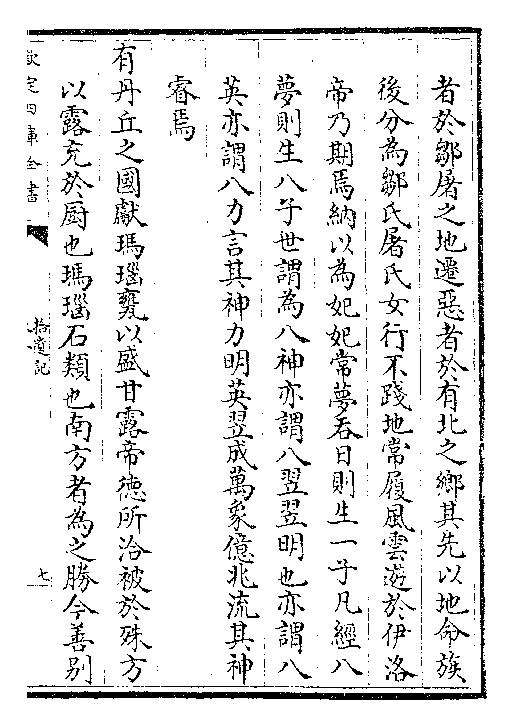 者於鄒屠之地遷惡者於有北之鄉其先以地命族
後分為鄒氏屠氏女行不踐地常履風雲遊於伊洛
帝乃期焉納以為妃妃常夢吞日則生一子凡經八
夢則生八子世謂為八神亦謂八翌翌明也亦謂八
英亦謂八力言其神力明英翌成萬象億兆流其神
睿焉
有丹丘之國獻瑪瑙甕以盛甘露帝德所洽被於殊方
以露充於厨也瑪瑙石類也南方者為之勝今善别
欽定四庫全書
拾遺記
七